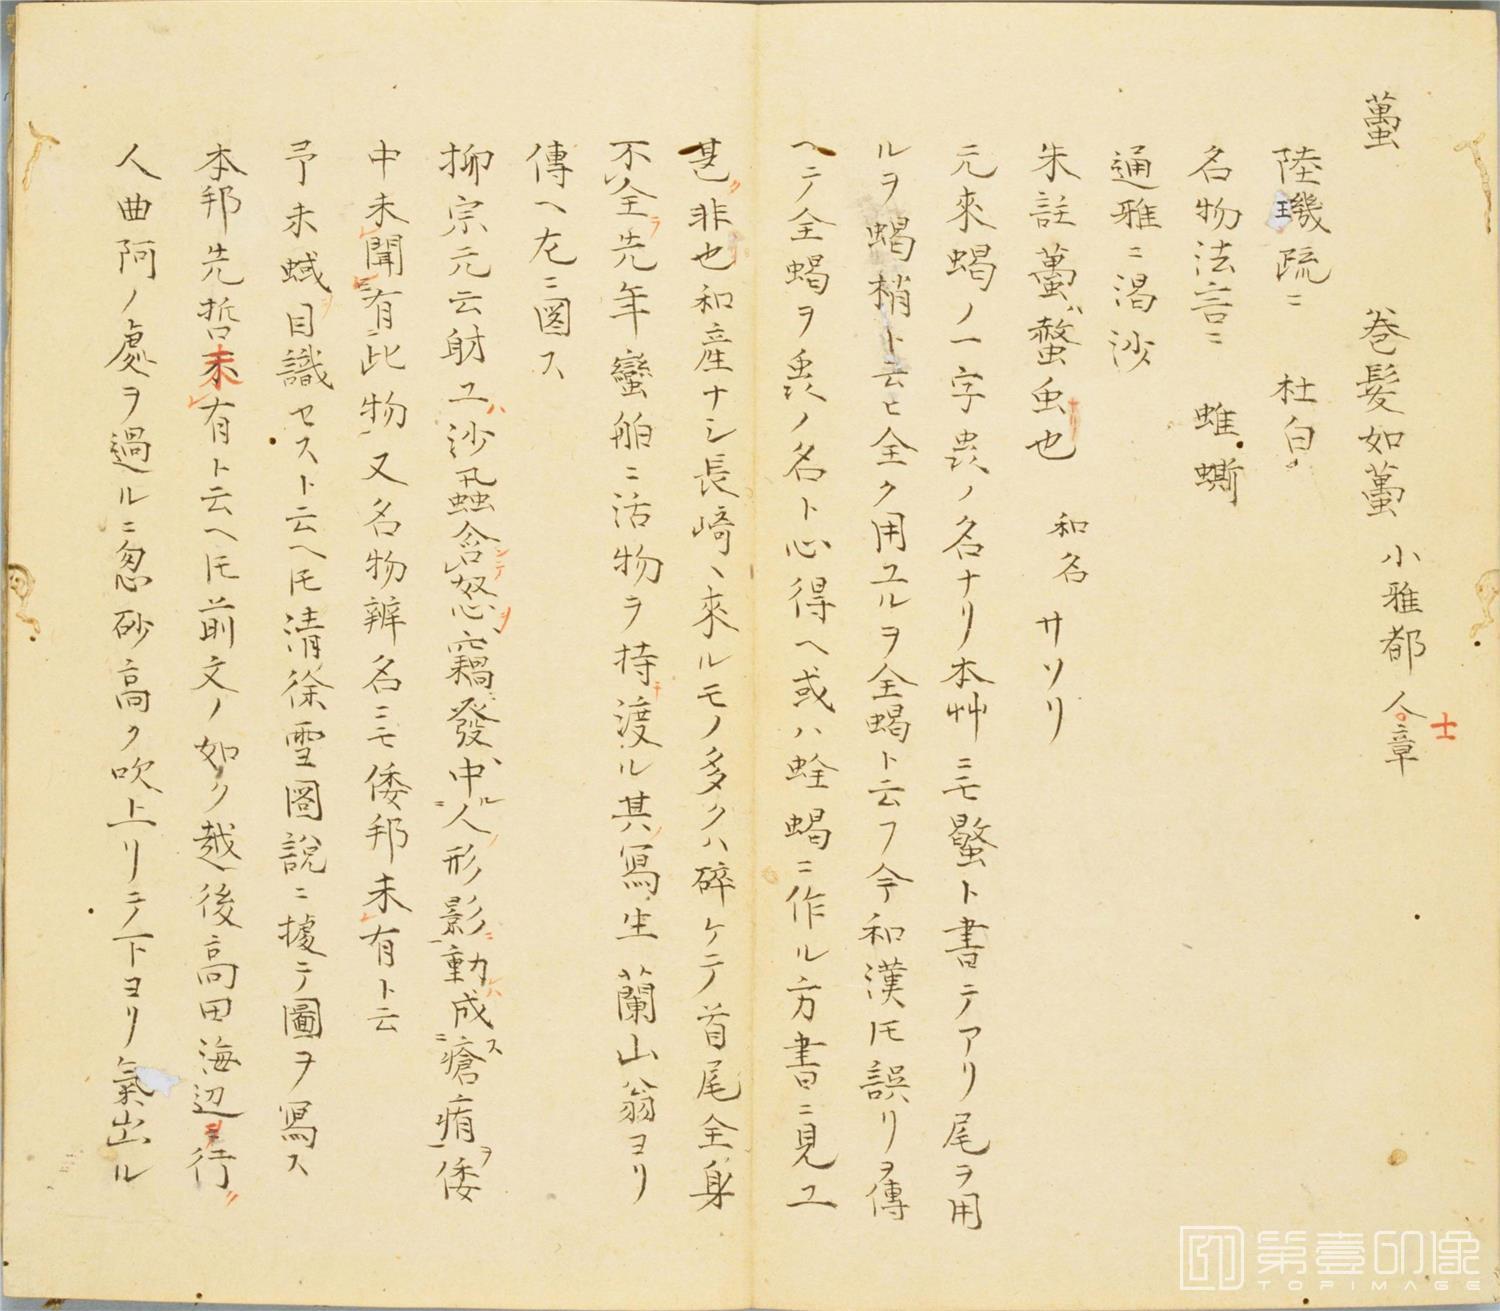 蠆 巻髮如蠆 小雅都人士章
陸璣疏ニ 杜白
名物法言ニ 蜼蟖
通雅ニ 渴沙
朱註蠆ハ螫虫也ナリ 和名 サソリ
元來蝎ノ一字ノ名ナリ本艸ニモト書テアリ尾ヲ用
ルヲ蝎梢ト云ヒ全ク用ユルヲ全蝎ト云フ今和漢トモ誤リヲ傳
ヘテ全蝎ヲノ名ト心得ヘ或ハ蛤蝎ニ作ル方書ニ見ユ
甚非也和産ナシ長崎ヘ來ルモノ多クハ碎ケテ首尾全身
不全ラ先年蠻舶ニ活物ヲ持チ渡ル其ノ寫生蘭山翁ヨリ
傳ヘ左ニ圖ス
柳宗元云射工ハ沙蝨含ンテ怒ヲ竊發中ル人ノ形影ニ動ハ成ス瘡痏ヲ倭
中未聞有此物又名物辨名ニモ倭邦未有ト云
予未目識セスト云ヘトモ清徐雪圖說ニ據テ圖ヲ寫ス
本邦先哲未有ト云ヘトモ前文ノ如ク越後高田海辺ヲ行
人曲阿ノ處ヲ過ルニ忽砂高ク吹上リテ下ヨリ氣出ル
第壹印像
TOPIMAGE